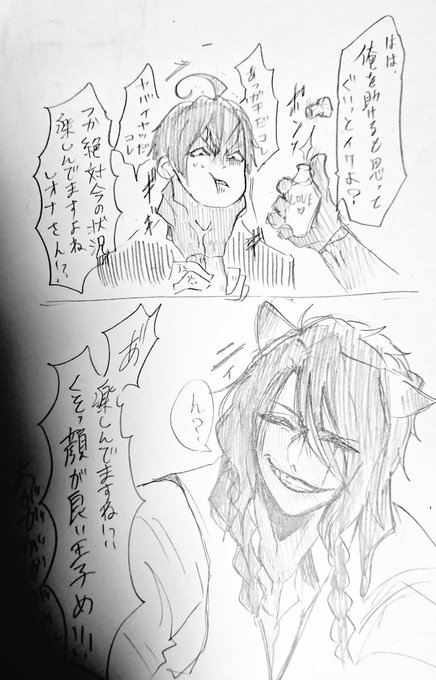 はは、
俺を助けると思って
ぐいっとイケよ?
ポンッ
LOVE
あっガチだコレ
ヤバイヤツだ
コレ
つか絶対今の状況
楽しんでますよね
レオナさん!?
ん?
楽しんでますね!?
くそっ顔が良い王子め!!